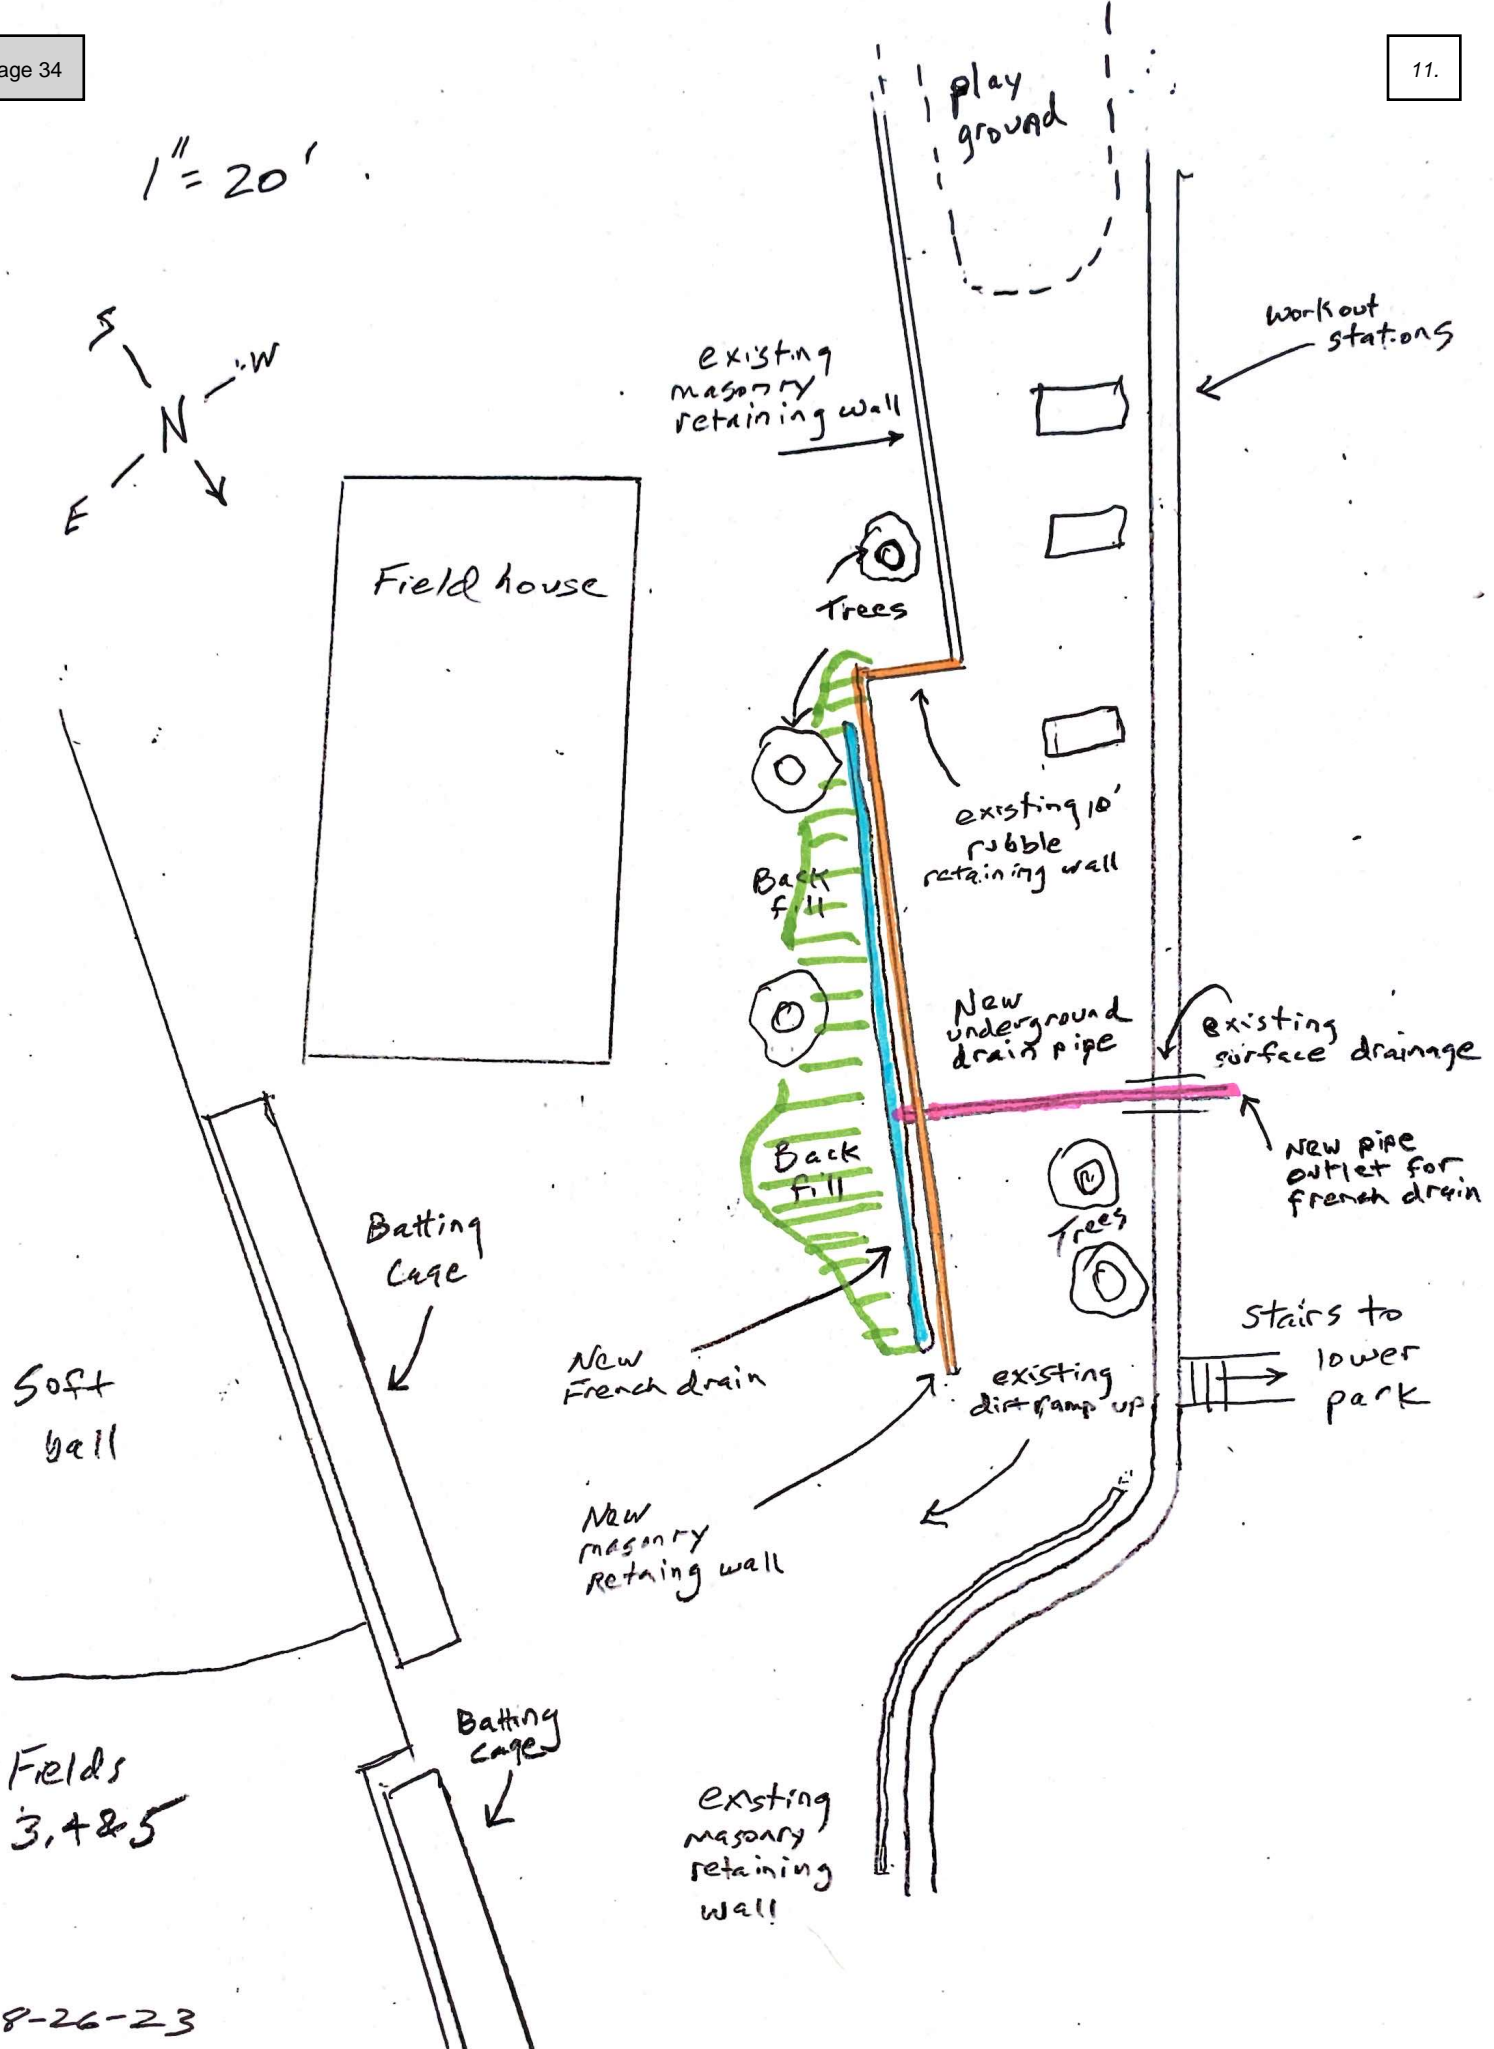 age 34
11.
1" = 20'
play
ground
S
W
N
E
workout
stations
existing
masonry
retaining wall
Field house
Trees
existing 10'
rubble
retaining wall
Back
fill
New
underground
drain pipe
existing
surface drainage
New pipe
outlet for
french drain
Back
fill
Trees
Batting
Cage
stairs to
lower
park
New
French drain
existing
dirt ramp up
Soft
ball
New
masonry
Retaing wall
Batting
cage
Fields
3, 4 & 5
existing
masonry
retaining
wall
8-26-23